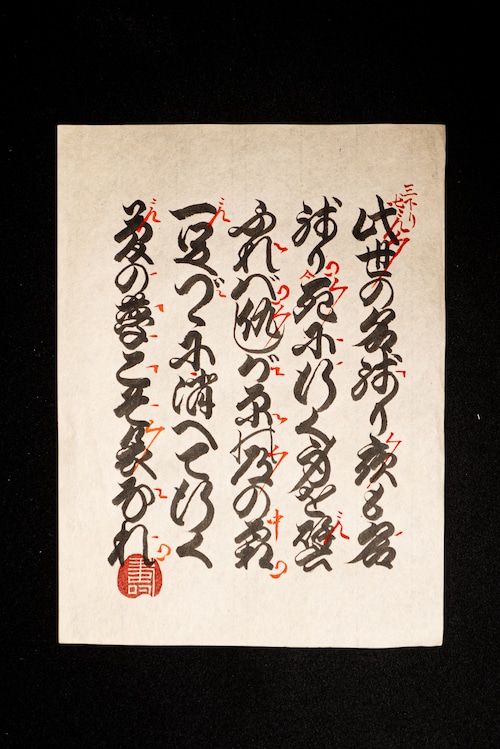 三下り
此世の名残り夜も名
残り死に行く身を譬
ふれば仇しが原の道の霜
一足づゝに消へて行く
夢の夢こそ哀なれ